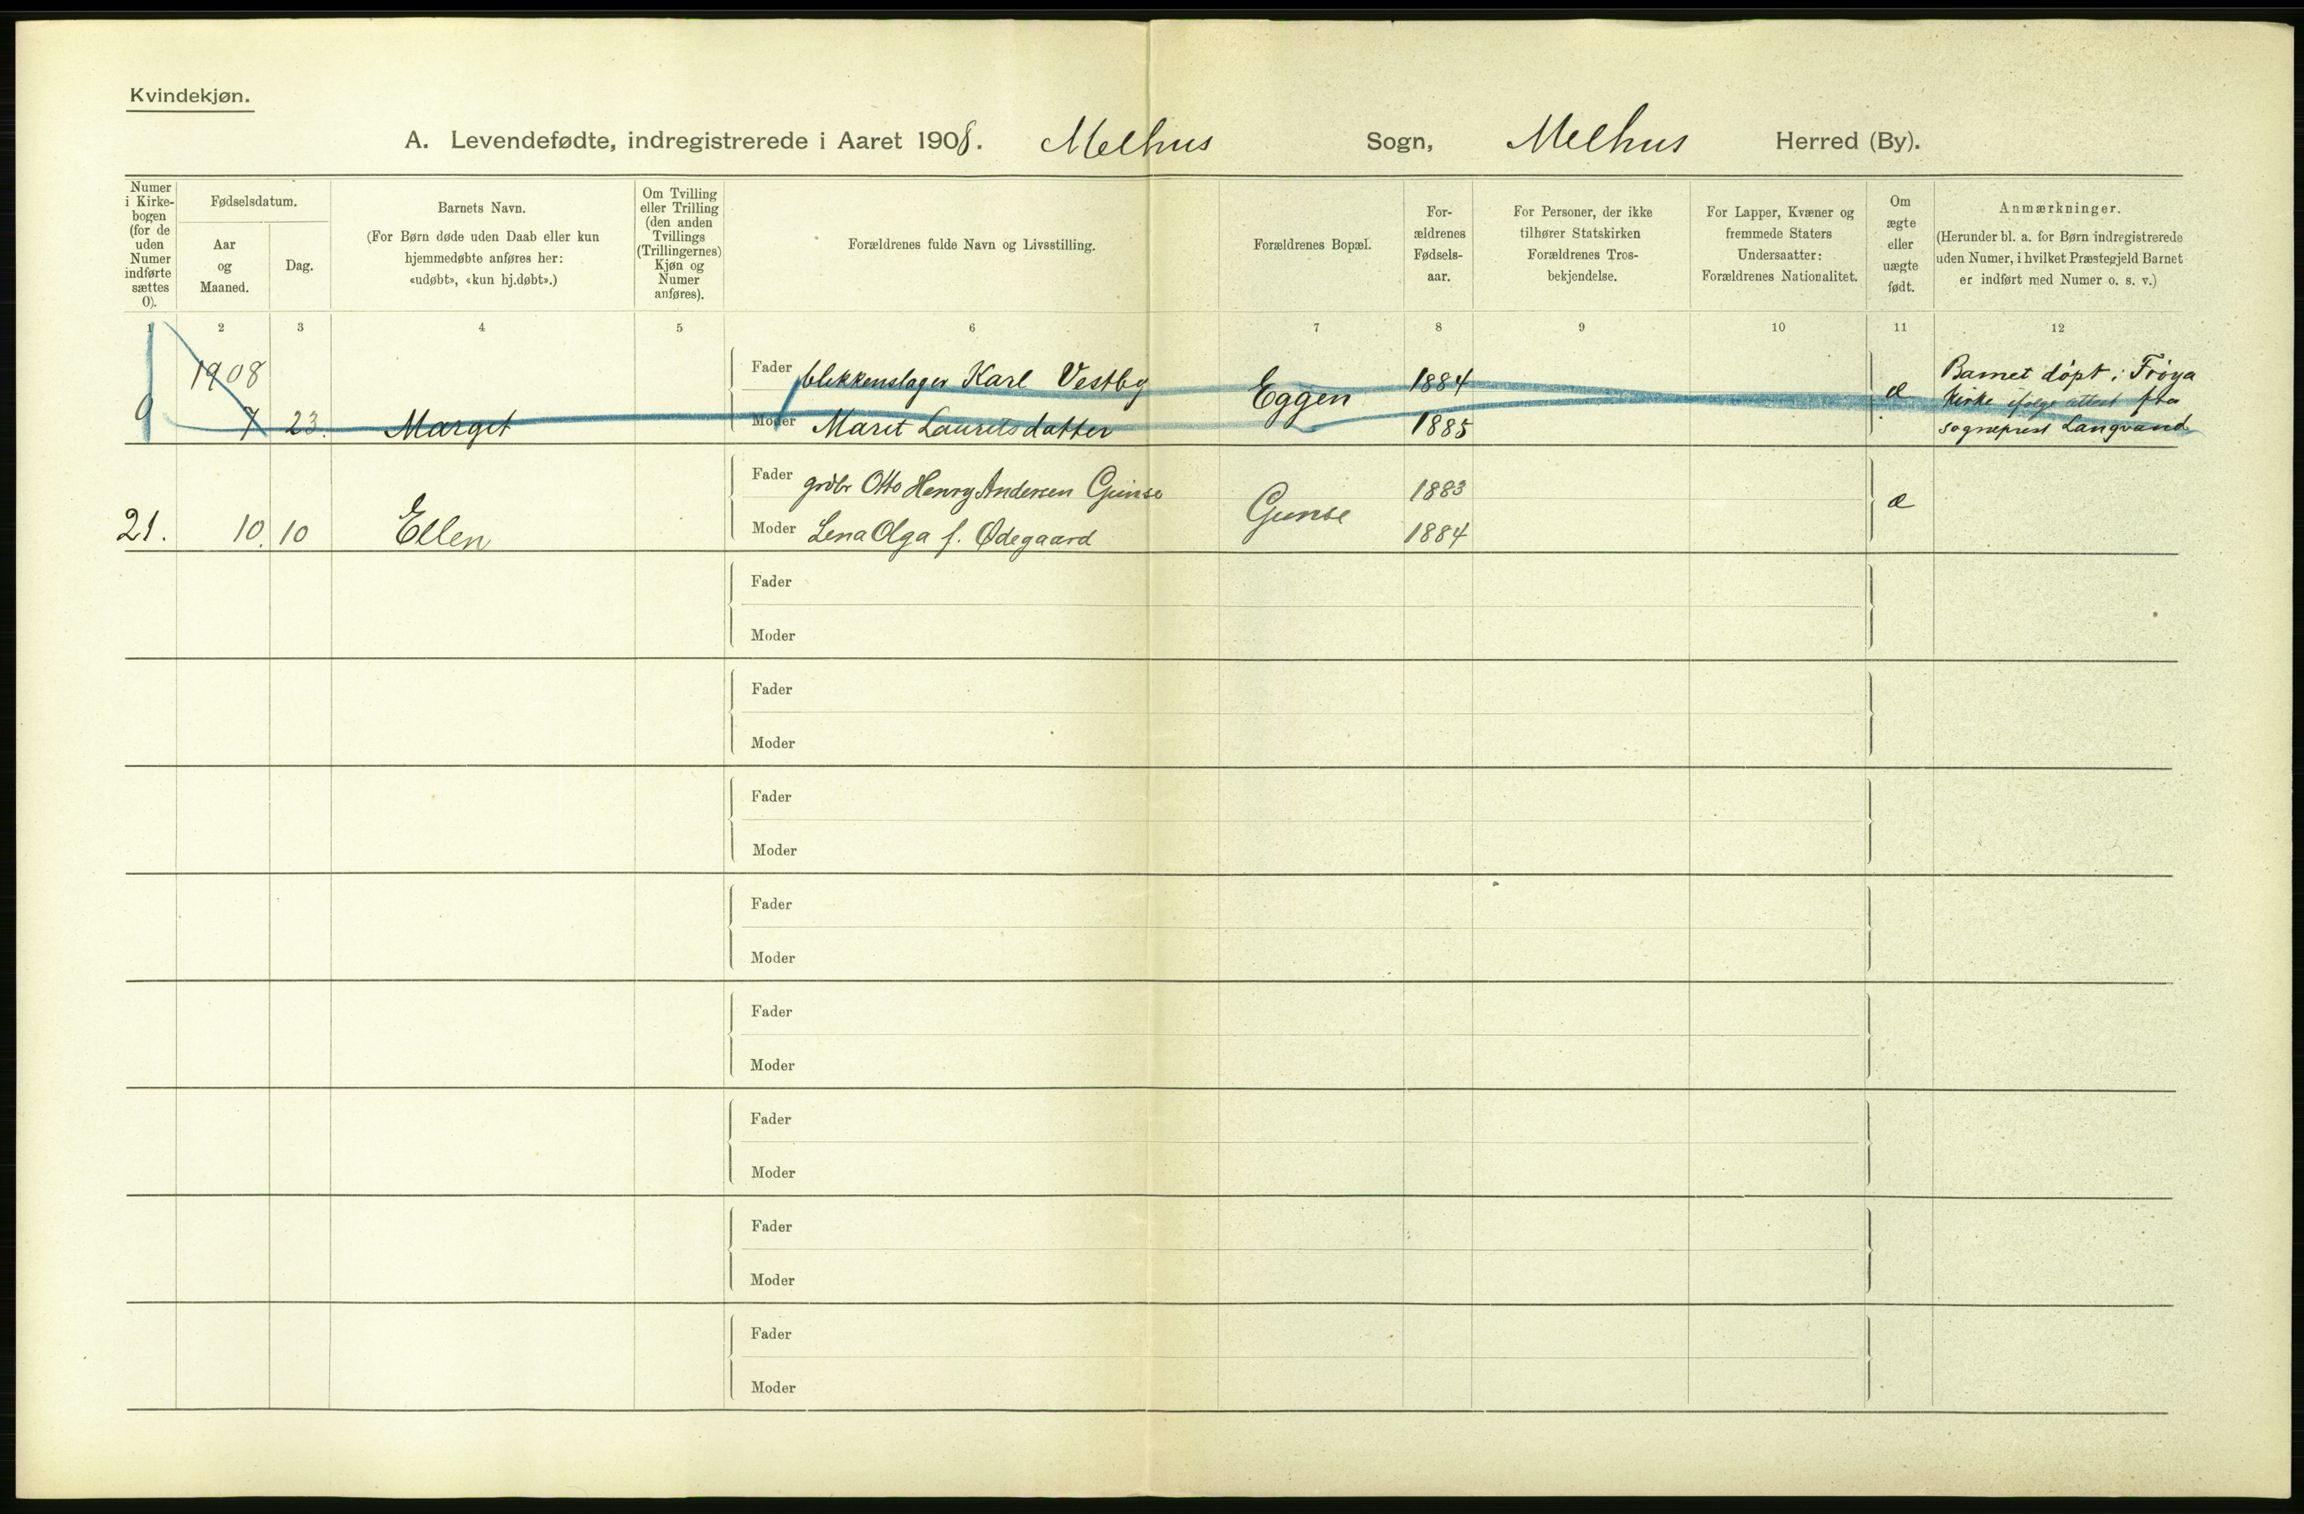 Kvindekjøn.
A. Levendefødte, indregistrerede i Aaret 1908. Melhus Sogn, Melhus Herred (By).
Numer i Kirkebogen (for de uden Numer indførte sættes 0).
Fødselsdatum.
Aar og Maaned.
Dag.
Barnets Navn.
(For Børn døde uden Daab eller kun hjemmedøbte anføres her: «udøbt», «kun hj.døbt».)
Om Tvilling eller Trilling (den anden Tvillings (Trillingernes) Kjøn og Numer anføres).
Forældrenes fulde Navn og Livsstilling.
Forældrenes Bopæl.
Forældrenes Fødselsaar.
For Personer, der ikke tilhører Statskirken Forældrenes Trosbekjendelse.
For Lapper, Kvæner og fremmede Staters Undersaatter: Forældrenes Nationalitet.
Om ægte eller uægte født.
Anmærkninger.
(Herunder bl. a. for Børn indregistrerede uden Numer, i hvilket Præstegjeld Barnet er indført med Numer o. s. v.)
1 2 3 4 5 6 7 8 9 10 11 12
1908
0 7 23. Margit
Fader blikkenslager Karl Vestby
Moder Maret Lauritsdatter
Eggen
1884
1885
æ
Barnet döpt i Fröya
kirke ifølge attest fra
sogneprest Langvand
21. 10. 10 Ellen
Fader grdbr Otto Henry Andersen Gunse
Moder Lena Olga f. Ødegaard
Gunse
1883
1884
æ
Fader
Moder
Fader
Moder
Fader
Moder
Fader
Moder
Fader
Moder
Fader
Moder
Fader
Moder
Fader
Moder